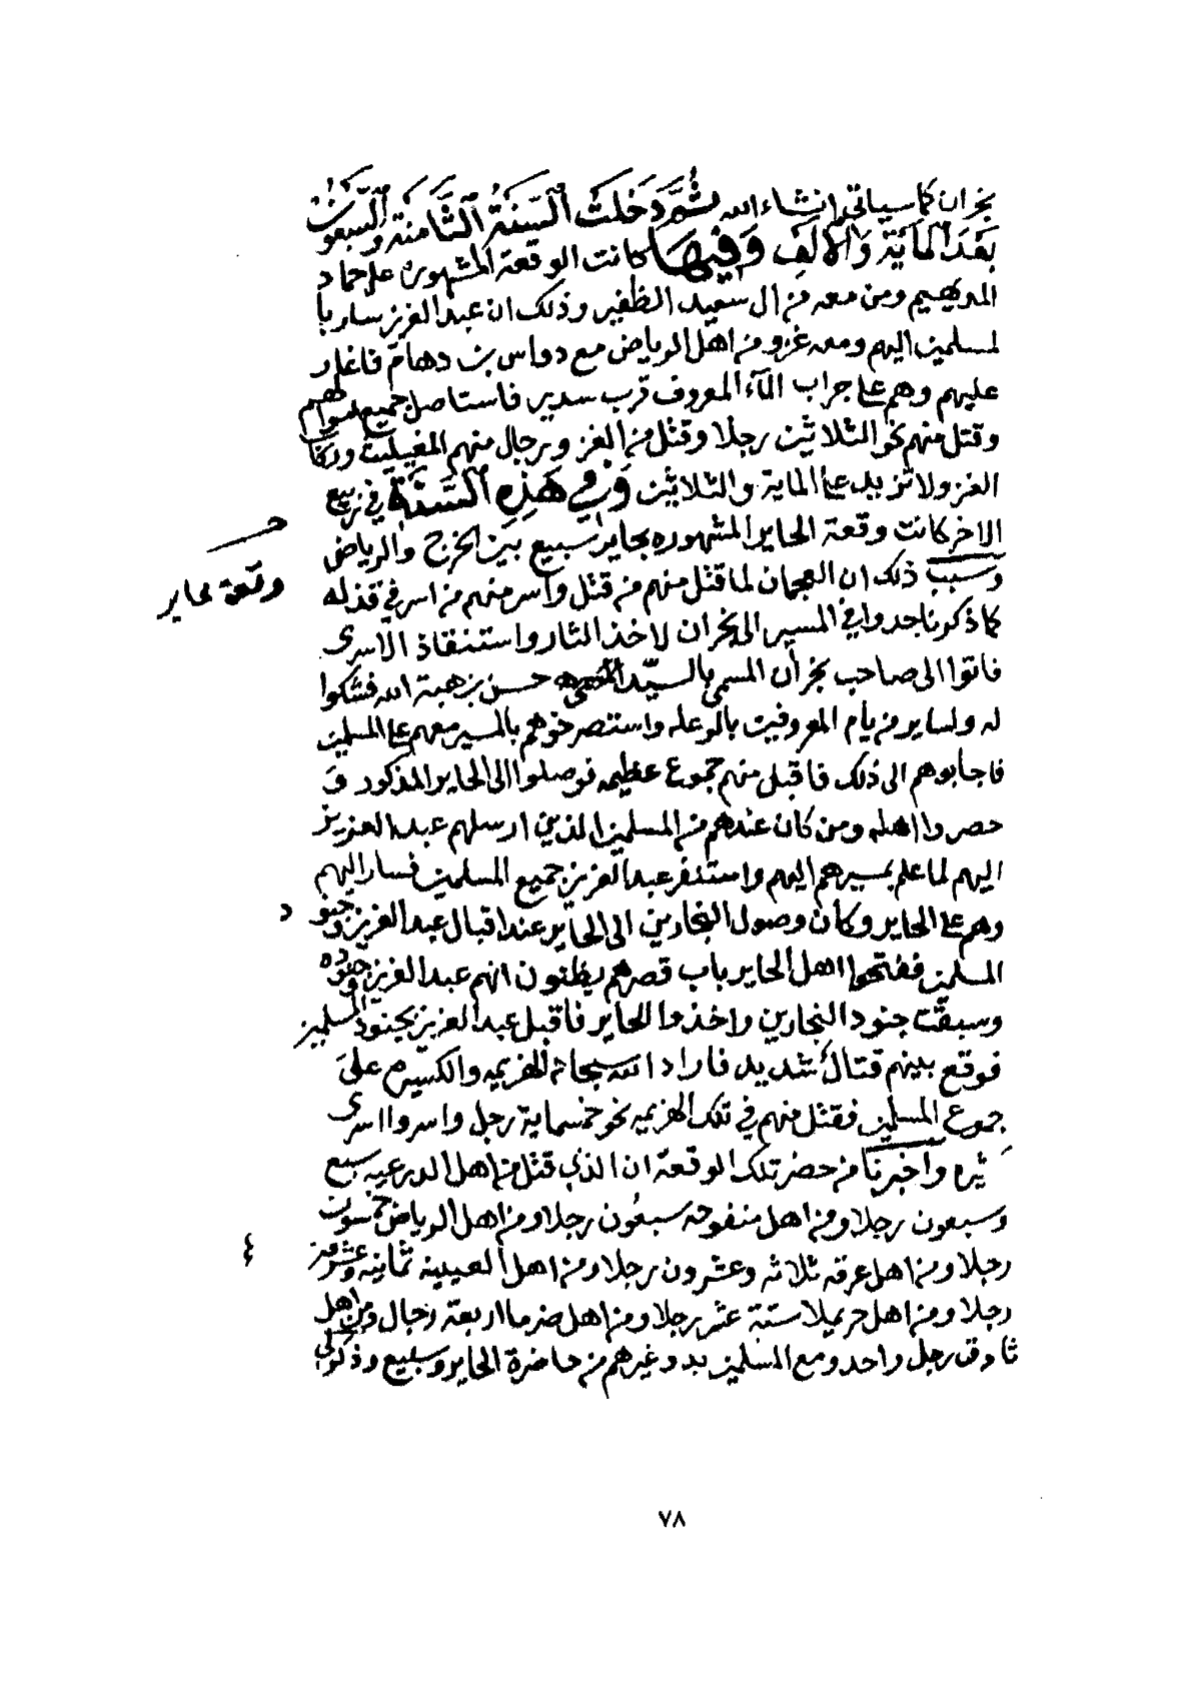 نجران كما سياتي انشاء الله ثم دخلت السنة الثامنة والسبعون
بعد الماية والالف وفيها كانت الوقعة المشهورة على حماد
المديهيم ومن معه من ال سعيد الظفير وذلك ان عبد العزيز سار با
لمسلمين اليهم ومعه غزو من اهل الرياض مع دواس بن دهام فاغار
عليهم وهم على جراب الماء المعروف قرب سدير فاستاصل جميع اموالهم
وقتل منهم نحو الثلاثين رجلا وقتل من الغزو رجال منهم المغيليث وركاب
الغزو لا تزيد على الماية والثلاثين وفي هذه السنة في ربيع
الاخر كانت وقعة الحاير المشهوره بحاير سبيع بين الخرج والرياض
وسبب ذلك ان العجمان لما قتل منهم من قتل واسر منهم من اسر في قذله
كما ذكرنا جدوا في المسير الى نجران لاخذ الثار واستنقاذ الاسرى
فاتوا الى صاحب نجران المسمى بالسيد حسن بن هبة الله فشكوا
له ولساير من يام المعروفين بالوعله واستصرخوهم بالمسير معهم على المسلمين
فاجابوهم الى ذلك فاقبل منهم جموع عظيمه فوصلوا الى الحاير المذكور و
حصروا اهله ومن كان عندهم من المسلمين الذين ارسلهم عبد العزيز
اليهم لما علم بمسيرهم اليهم واستنفر عبد العزيز جميع المسلمين فسار اليهم
وهم على الحاير وكان وصول النجارين الى الحاير عند اقبال عبد العزيز وجنود
المسلمين ففتحوا اهل الحاير باب قصرهم يظنون انهم عبد العزيز وجنوده
وسبقت جنود النجارين واخذوا الحاير فاقبل عبد العزيز بجنود المسلمين
فوقع بينهم قتال شديد فاراد الله سبحانه الهزيمه والكسيره على
جموع المسلمين فقتل منهم في تلك الهزيمه نحو خمسماية رجل واسروا اسرى
ثيره واخبرنا من حضر تلك الوقعة ان الذي قتل من اهل الدرعيه سبع
وسبعون رجلا ومن اهل منفوحه سبعون رجلا ومن اهل الرياض خمسون
رجلا ومن اهل عرقه ثلاثه وعشرون رجلا ومن اهل العيينه ثمانيه وعشرون
رجلا ومن اهل حريملا ستة عشر رجلا ومن اهل ضرما اربعة رجال ومن اهل
ثادق رجل واحد ومع المسلمين بدو غيرهم من حاضرة الحاير وسبيع وذكر لي
وقعة حاير
٤
٧٨